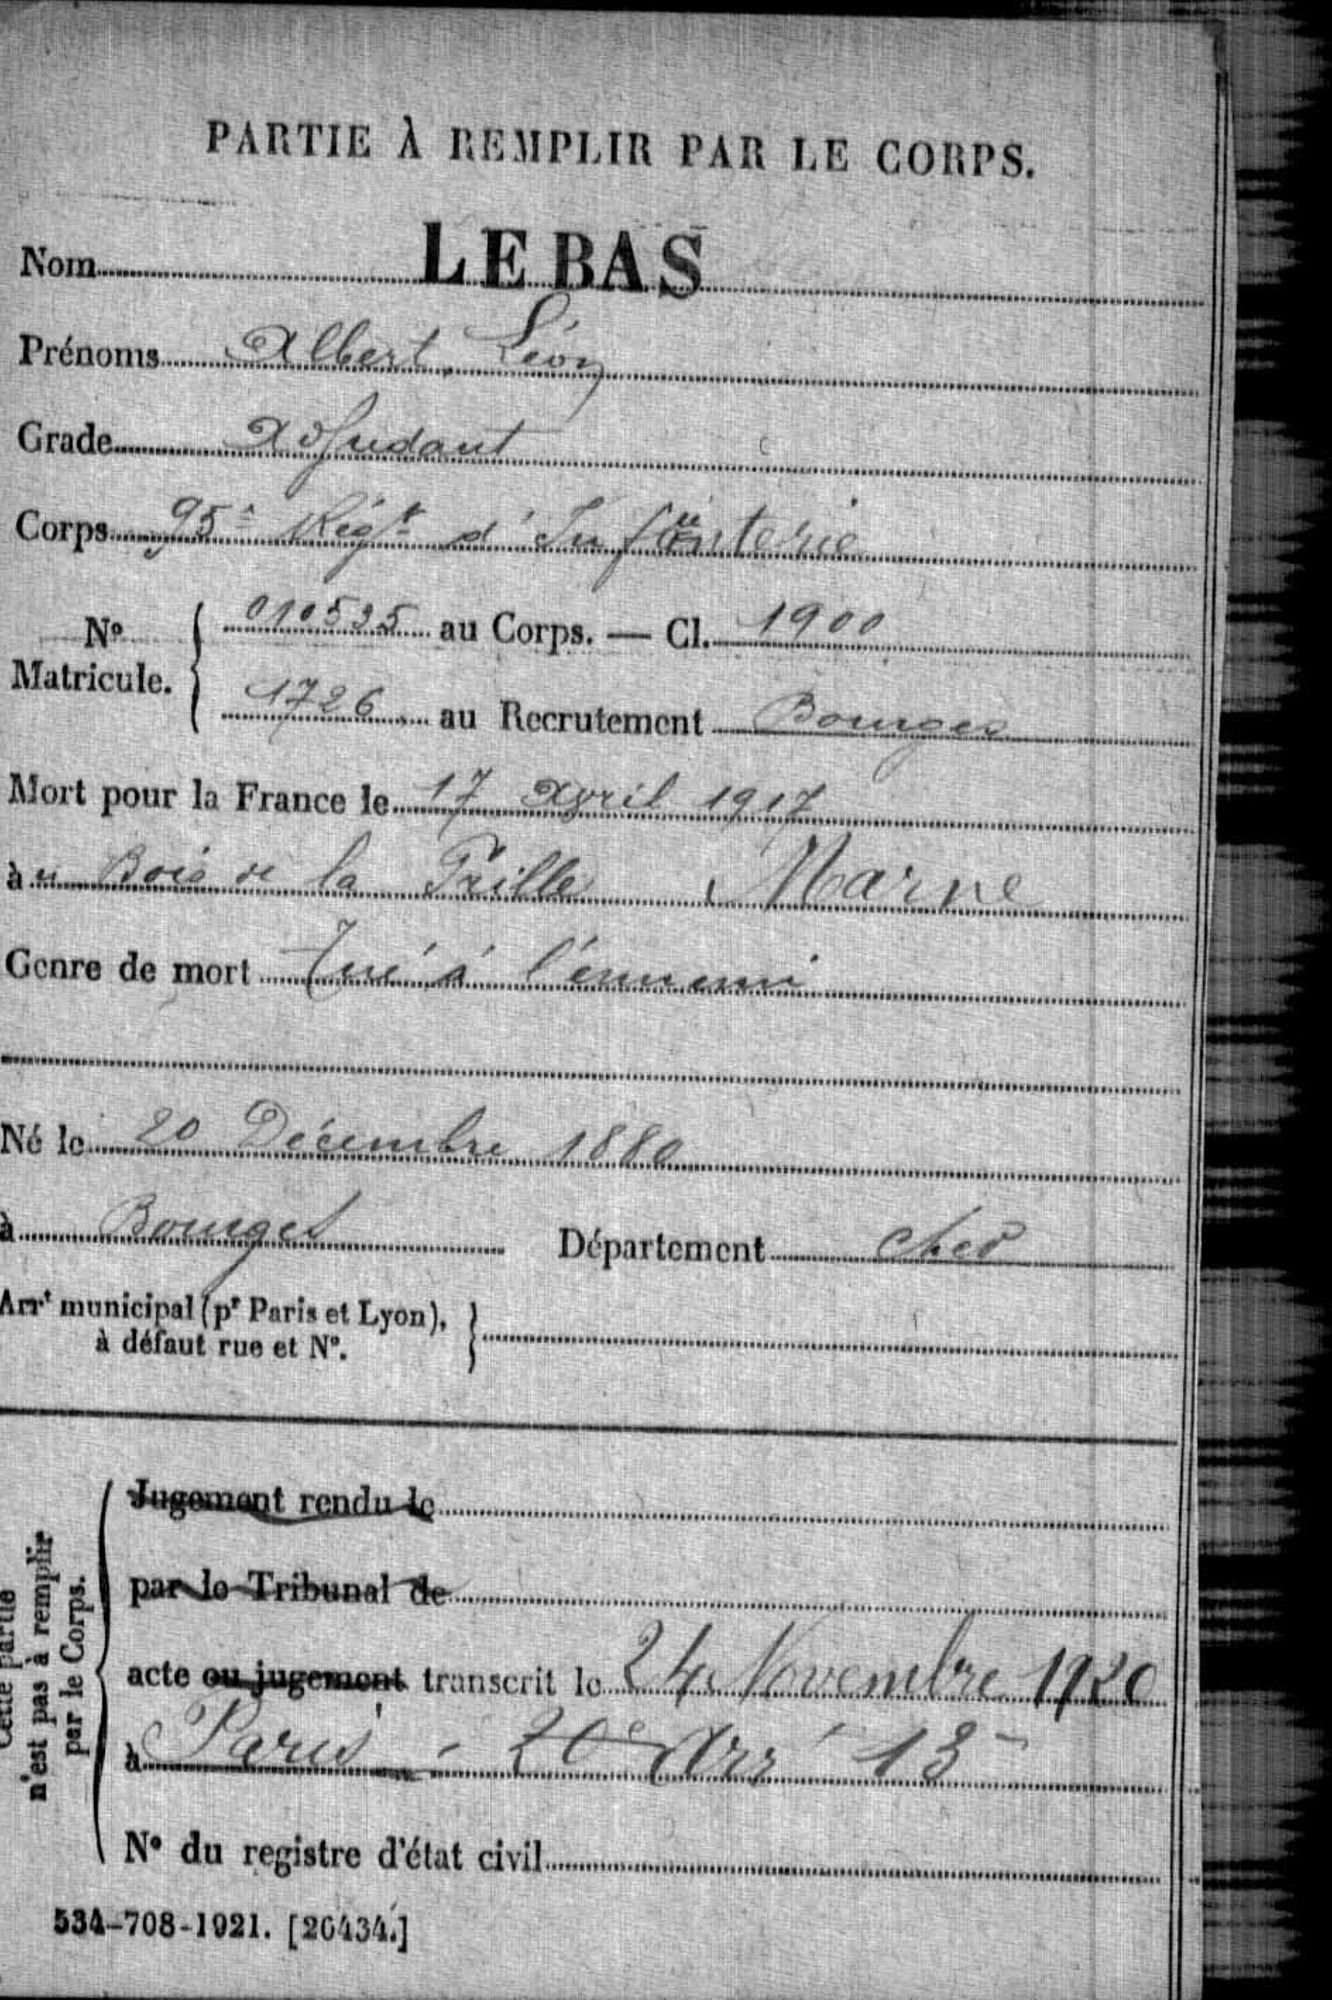 PARTIE À REMPLIR PAR LE CORPS.
Nom LEBAS
Prénoms Albert, Léon
Grade Adjudant
Corps 95e Régt d'Infanterie
No Matricule. { 010535 au Corps. — Cl. 1900
1726 au Recrutement Bourges
Mort pour la France le 17 Avril 1917
à u Bois de la Grille, Marne
Genre de mort Tué à l'ennemi
Né le 20 Décembre 1880
à Bourges Département Cher
Arrt municipal (pr Paris et Lyon),
à défaut rue et No.
Cette partie
n'est pas à remplir
par le Corps.
Jugement rendu le
par le Tribunal de
acte ou jugement transcrit le 24 Novembre 1920
à Paris - 20e Arrt
No du registre d'état civil
534-708-1921. [26434.]